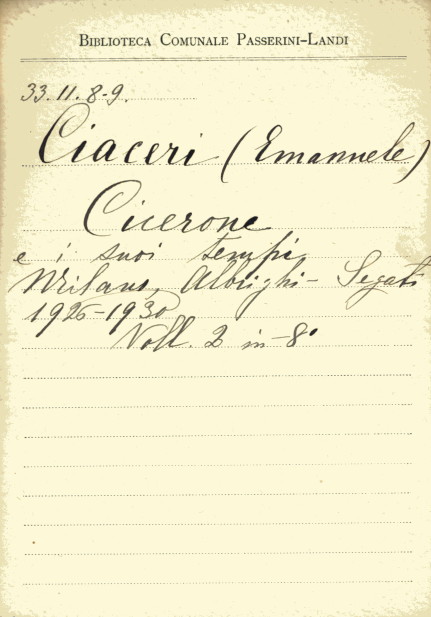 BIBLIOTECA COMUNALE PASSERINI-LANDI
33.11.8-9.
Ciaceri (Emanuele)
Cicerone
e i suoi tempi
Milano, Albrighi- Segati
1926-1930
Voll. 2 in-8°